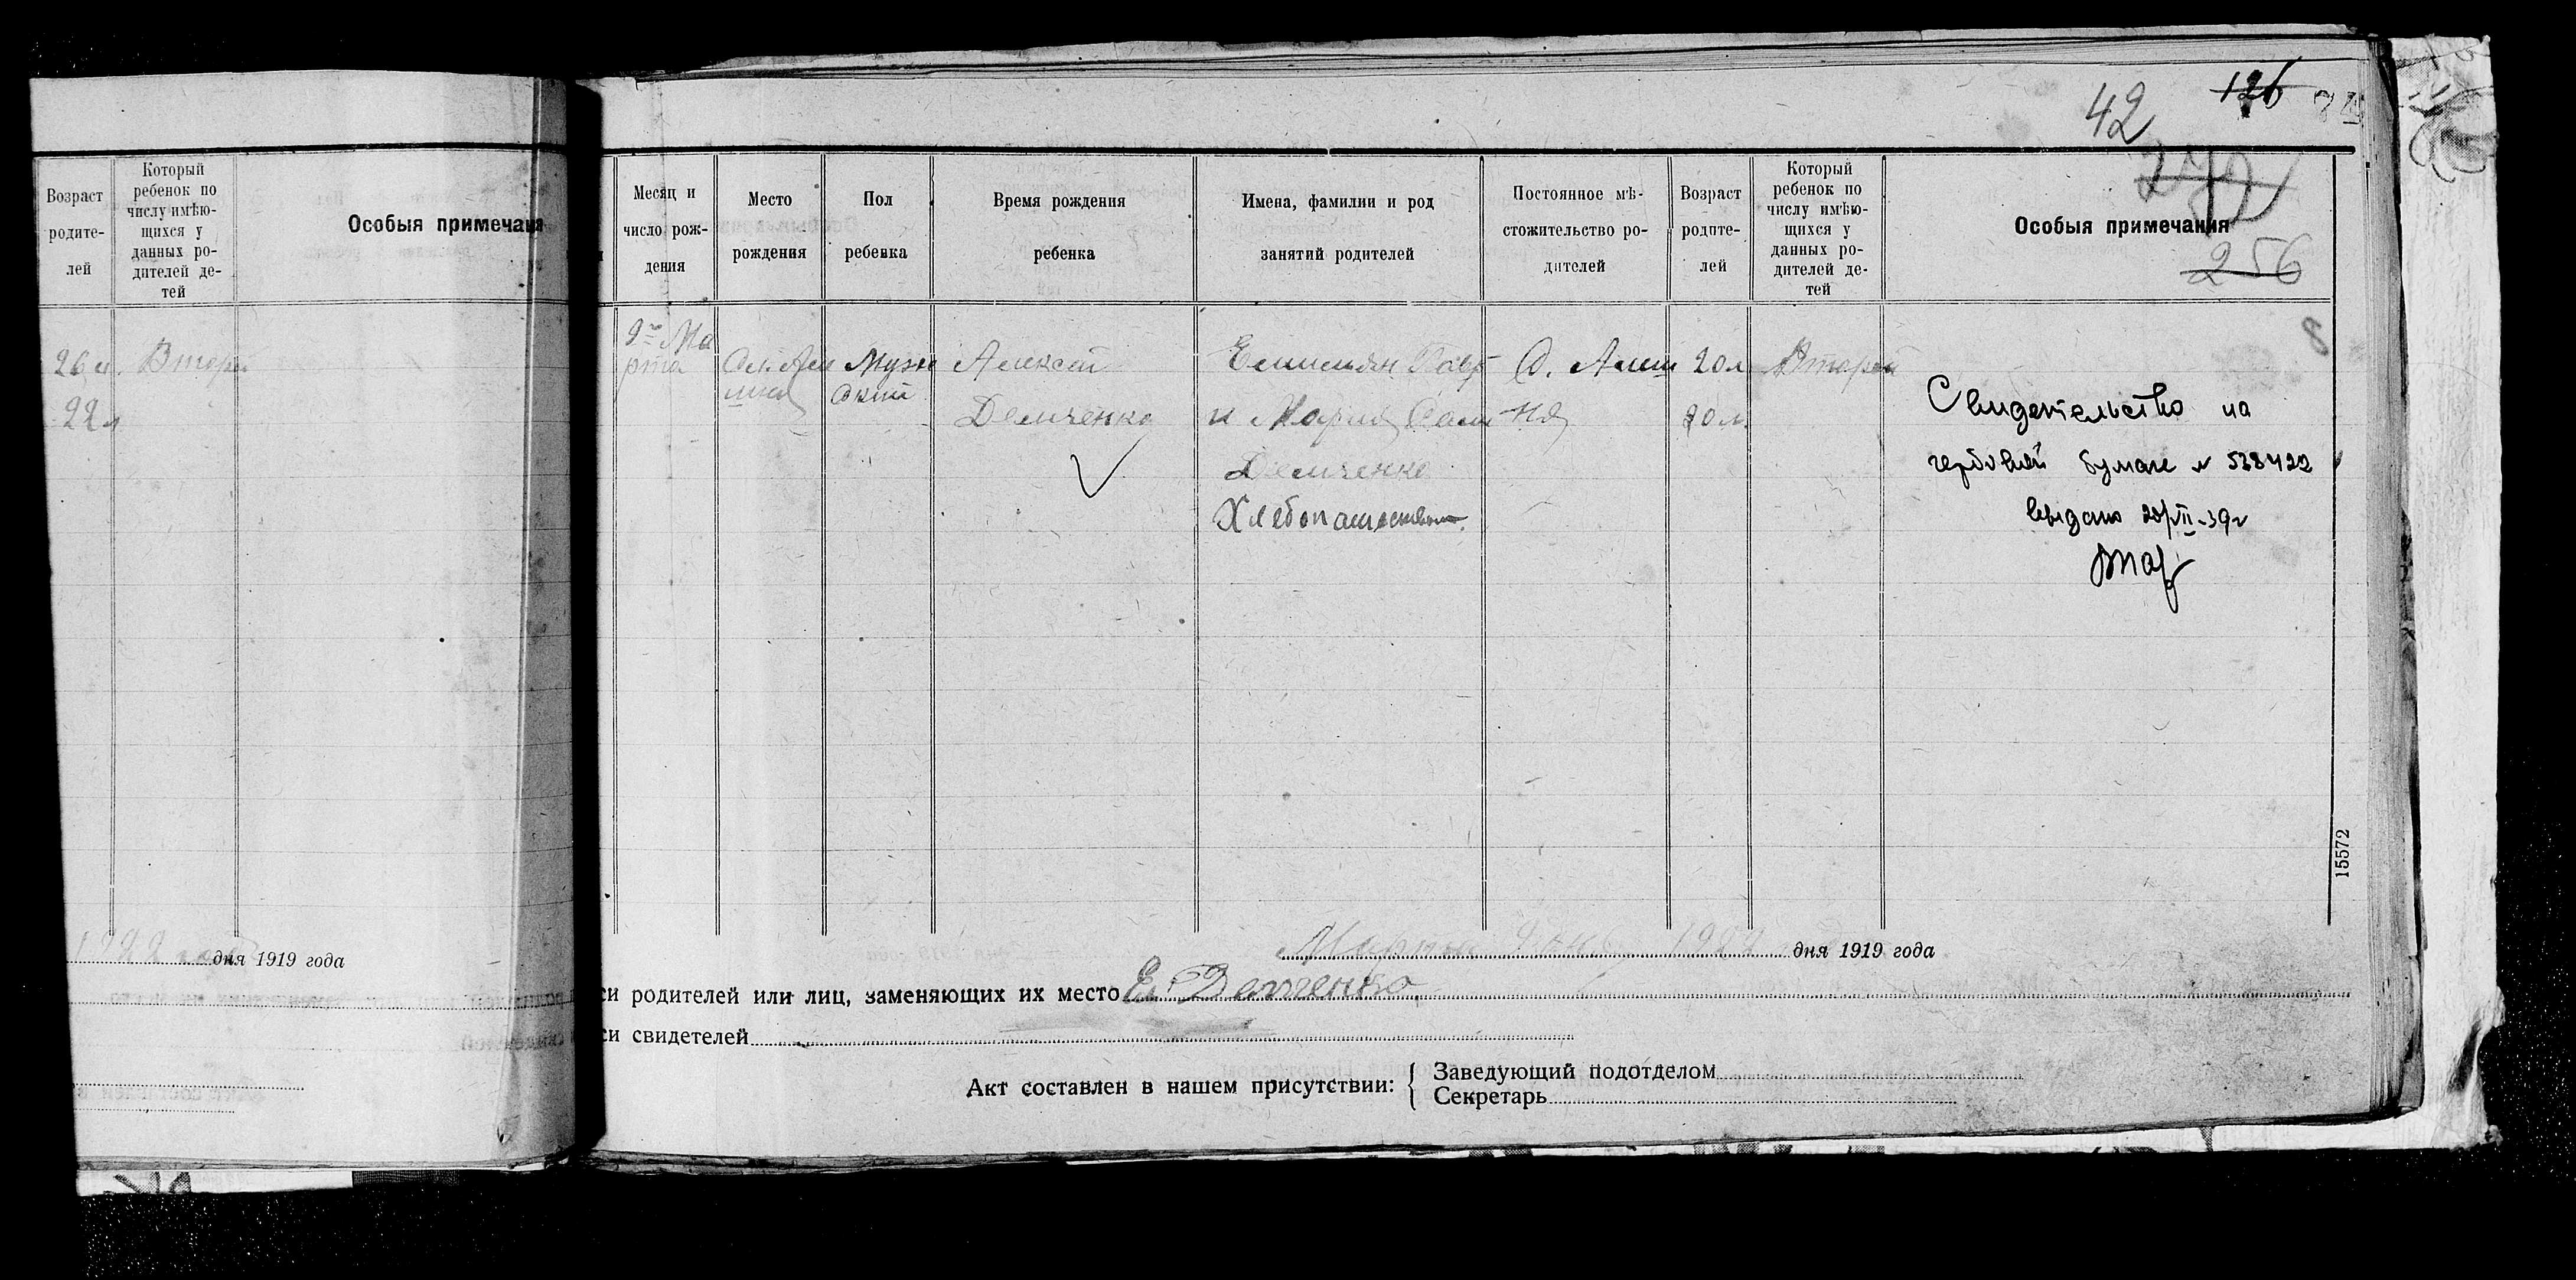 42 126
256
Возраст
родите-
лей
Который
ребенок по
числу имѣю-
щихся у
данных ро-
дителей де-
тей
Особыя примечания
26 л. Второй
22 л
1922 года дня 1919 года
Месяц и
число рож-
дения
Место
рождения
Пол
ребенка
Время рождения
ребенка
Имена, фамилии и род
занятий родителей
Постоянное мѣ-
стожительство ро-
дителей
Возраст
родите-
лей
Который
ребенок по
числу имѣю-
щихся у
данных ро-
дителей де-
тей
Особыя примечания
8
9го Ма
рта
Муж
ской
Алексей
Демченко
Емельян Павл
и Мария
Демченко
Хлебопашество.
20 л
20 л.
Второй
Свидетельство на
гербовой бумаге № 538422
выдано 20/VII-39 г
Марта 1922 дня 1919 года
си родителей или лиц, заменяющих их место Е. Демченко
си свидетелей
Акт составлен в нашем присутствии: { Заведующий подотделом
Секретарь
15572